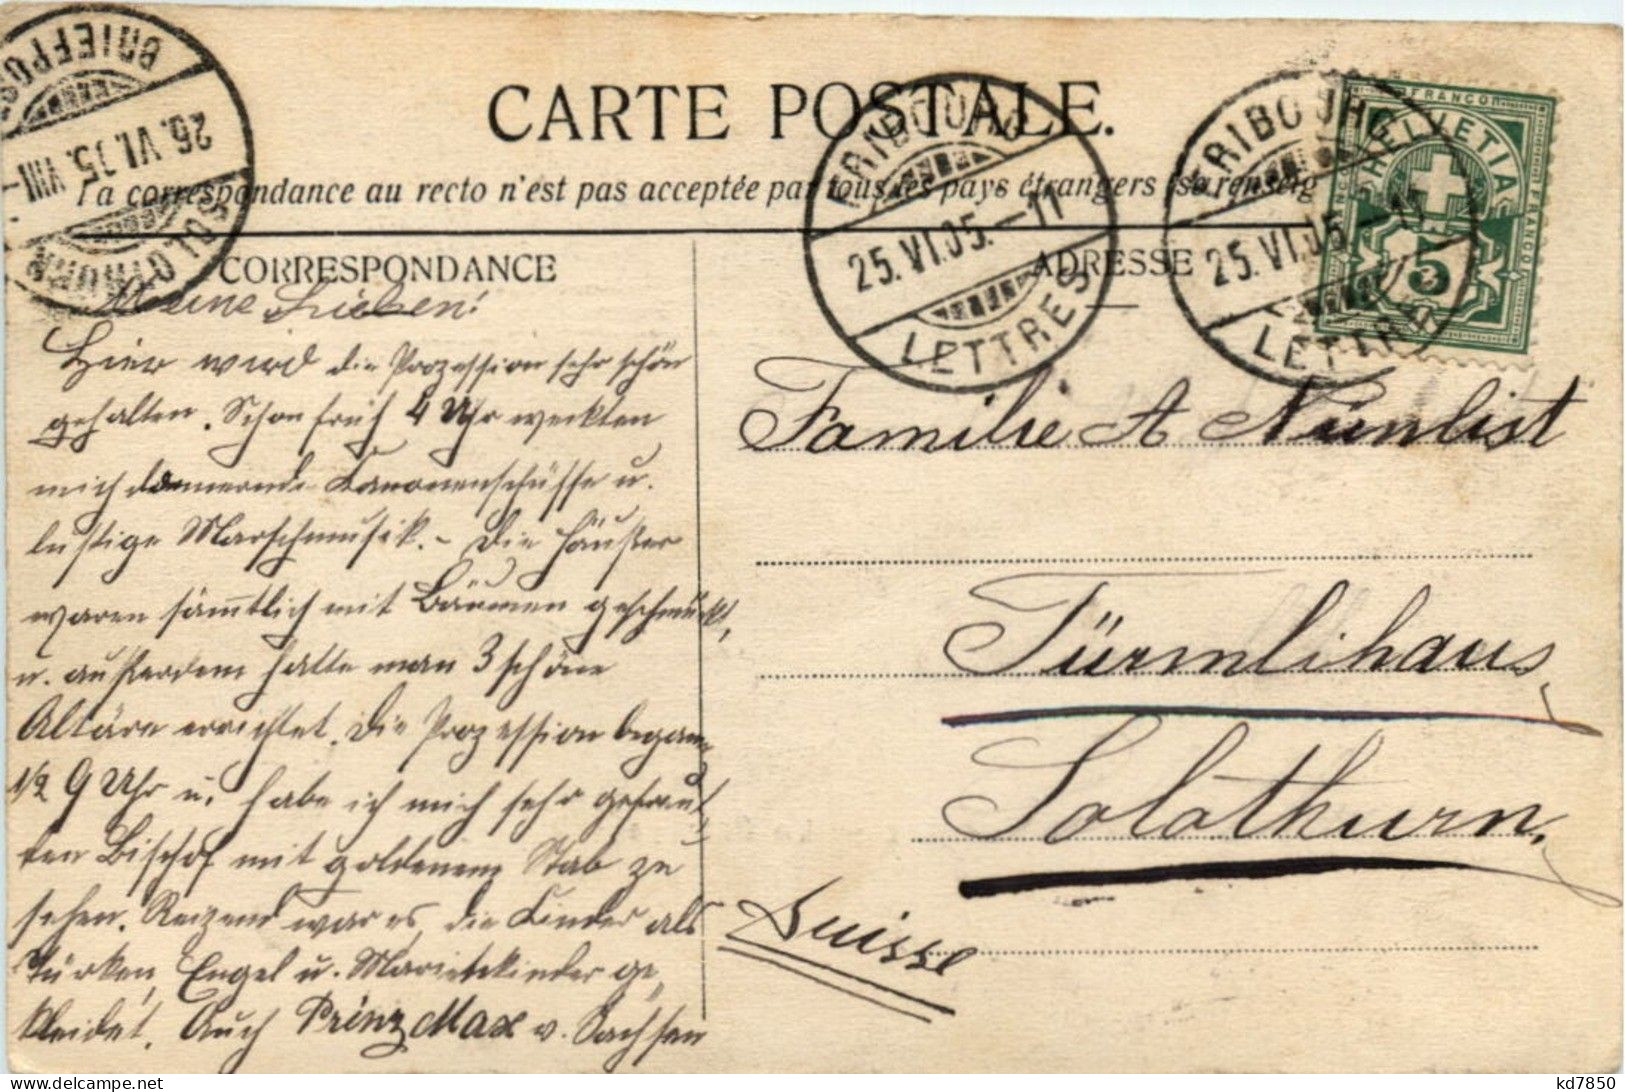 CARTE POSTALE.
La correspondance au recto n'est pas acceptée par tous les pays étrangers (se renseig
BRIEFPOST
26.VI.05.VIII-
SOLOTHURN
FRIBOURG
25.VI.05.-11
LETTRES
FRIBOURG
25.VI.05.-11
LETTRES
FRANCO
HELVETIA
5
CORRESPONDANCE
ADRESSE
Meine Lieben!
Hier wird die Prozession sehr schön
gehalten. Schon früh 4 Uhr weckten
mich donnernde Kanonenschüsse u.
lustige Marschmusik. – Die Häuser
waren sämmtlich mit Bäumen geschmückt,
u. ausserdem hatte man 3 schöne
Altäre errichtet. Die Prozession begann
1/2 9 Uhr u. habe ich mich sehr gefreut
den Bischof mit goldenem Stab zu
sehen. Reizend war es, die Kinder als
Türken, Engel u. Marienkinder ge-
kleidet. Auch Prinz Max v. Sachsen
Familie A Nünlist
Türmlihaus
Solothurn.
Suisse
kd7850